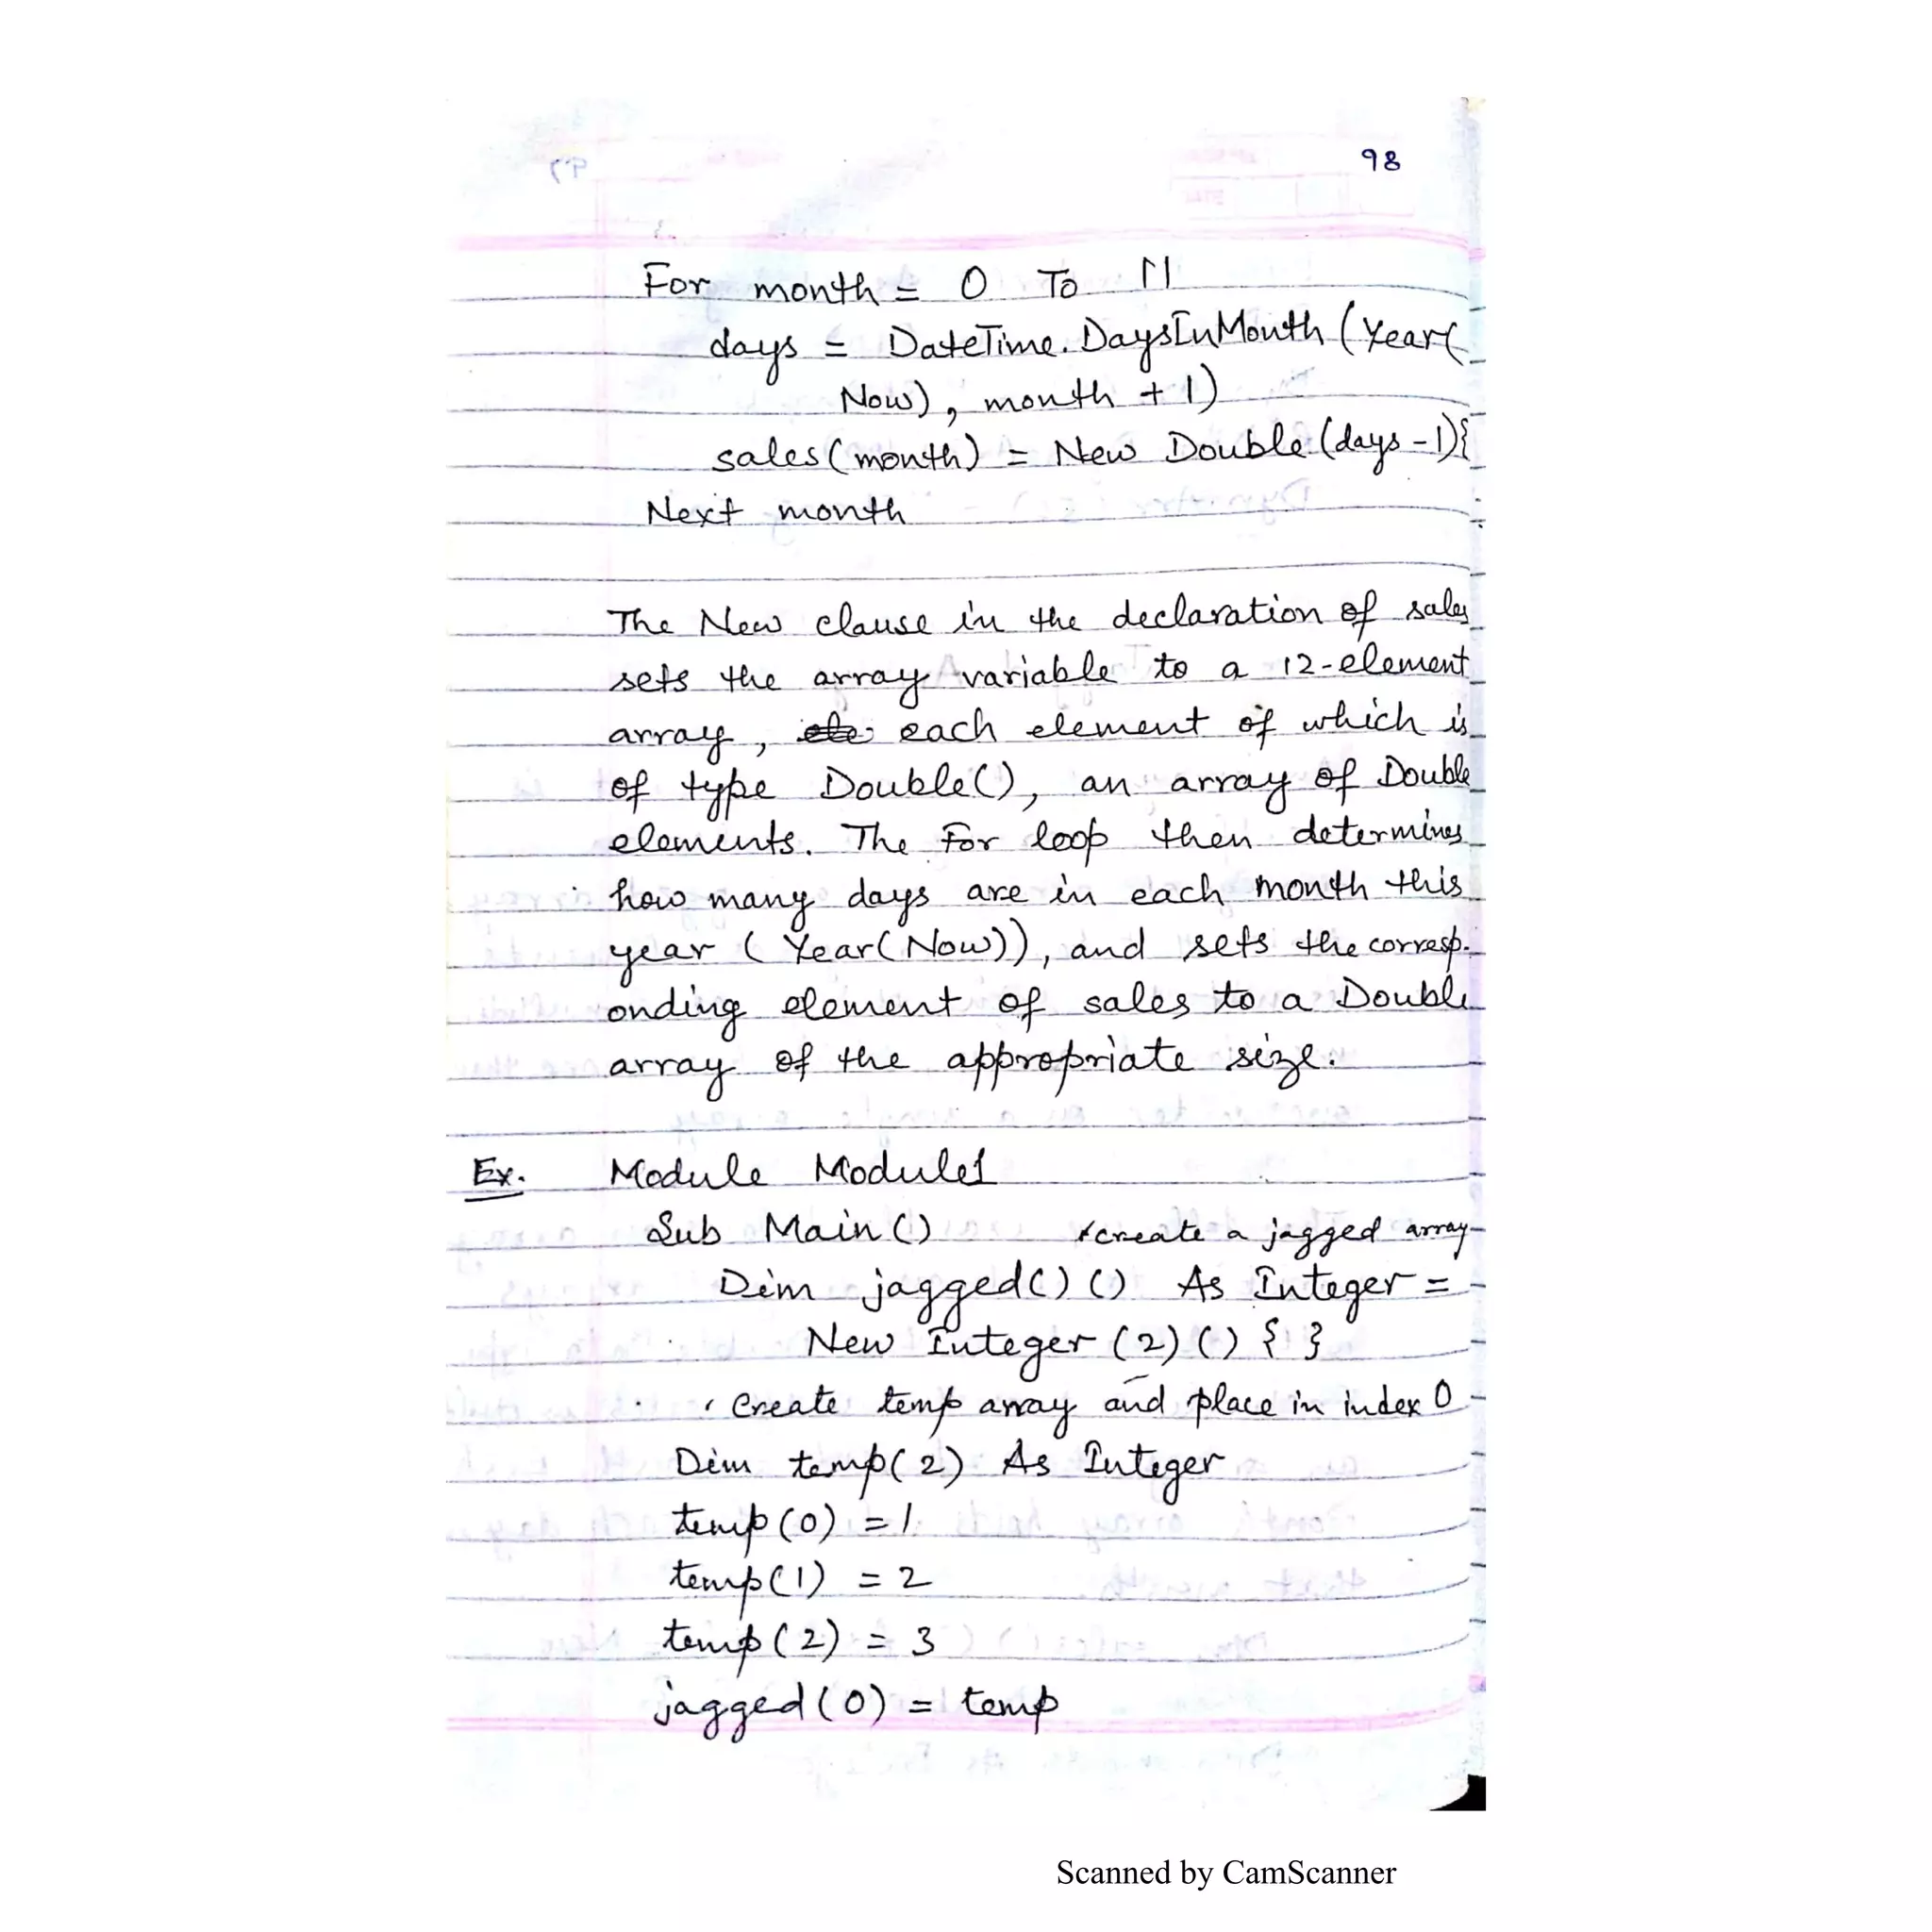 98
For month = 0 To 11
days = DateTime.DaysInMonth (Year(
Now), month + 1)
sales(month) = New Double (days - 1){
Next month
The New clause in the declaration of sales
sets the array variable to a 12-element
array, each element of which is
of type Double(), an array of Double
elements. The For loop then determines
how many days are in each month this
year ( Year(Now)), and sets the corresp-
onding element of sales to a Double
array of the appropriate size.
Ex. Module Module1
Sub Main () 'create a jagged array
Dim jagged() () As Integer =
New Integer (2) () { }
' Create temp array and place in index 0
Dim temp(2) As Integer
temp(0) = 1
temp(1) = 2
temp(2) = 3
jagged(0) = temp
Scanned by CamScanner